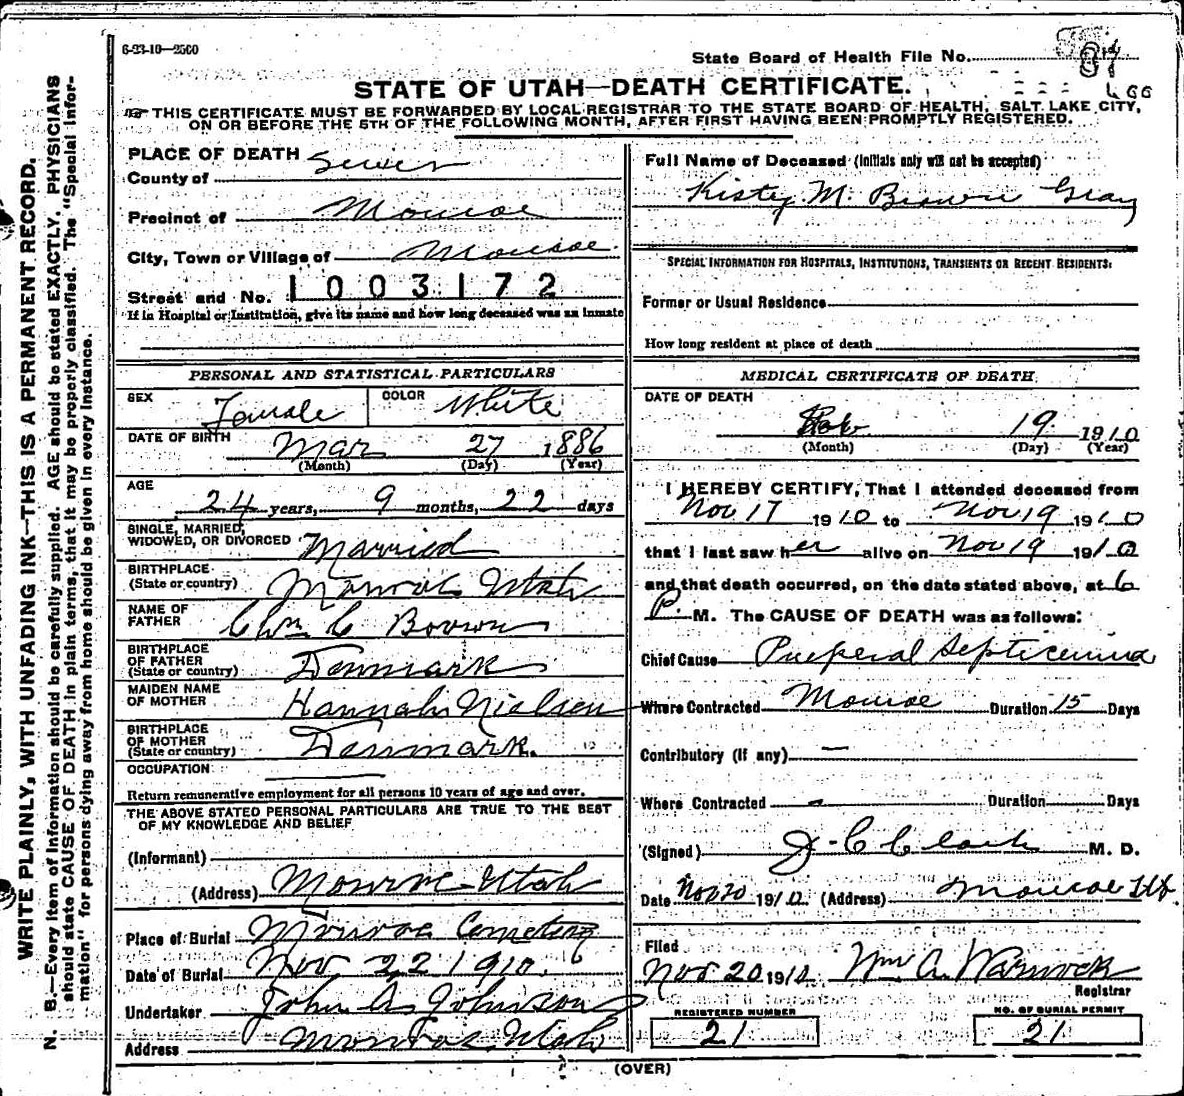 6-23-10—2500
State Board of Health File No.
STATE OF UTAH—DEATH CERTIFICATE.
THIS CERTIFICATE MUST BE FORWARDED BY LOCAL REGISTRAR TO THE STATE BOARD OF HEALTH, SALT LAKE CITY,
ON OR BEFORE THE 5TH OF THE FOLLOWING MONTH, AFTER FIRST HAVING BEEN PROMPTLY REGISTERED.
WRITE PLAINLY, WITH UNFADING INK—THIS IS A PERMANENT RECORD.
N. B.—Every item of information should be carefully supplied. AGE should be stated EXACTLY. PHYSICIANS
should state CAUSE OF DEATH in plain terms, that it may be properly classified. The "Special Infor-
mation" for persons dying away from home should be given in every instance.
PLACE OF DEATH
County of Sevier
Precinct of Monroe
City, Town or Village of Monroe
Street and No. 1003172
If in Hospital or Institution, give its name and how long deceased was an inmate
PERSONAL AND STATISTICAL PARTICULARS
SEX Female COLOR White
DATE OF BIRTH Mar 27 1886
(Month) (Day) (Year)
AGE
24 years, 9 months, 22 days
SINGLE, MARRIED,
WIDOWED, OR DIVORCED Married
BIRTHPLACE
(State or country) Monroe Utah
NAME OF
FATHER C Brown
BIRTHPLACE
OF FATHER
(State or country) Denmark
MAIDEN NAME
OF MOTHER Hannah Nielsen
BIRTHPLACE
OF MOTHER
(State or country) Denmark.
OCCUPATION
Return remunerative employment for all persons 10 years of age and over.
THE ABOVE STATED PERSONAL PARTICULARS ARE TRUE TO THE BEST
OF MY KNOWLEDGE AND BELIEF
(Informant)
(Address) Monroe Utah
Place of Burial Monroe Cemetery
Date of Burial Nov 22 1910.
Undertaker John A Johnson
Address Monroe Utah
Full Name of Deceased (Initials only will not be accepted)
Kisty M. Brown Gray
SPECIAL INFORMATION FOR HOSPITALS, INSTITUTIONS, TRANSIENTS OR RECENT RESIDENTS:
Former or Usual Residence
How long resident at place of death
MEDICAL CERTIFICATE OF DEATH
DATE OF DEATH
19 1910
(Month) (Day) (Year)
I HEREBY CERTIFY, That I attended deceased from
Nov 17 1910 to Nov 19 1910
that I last saw her alive on Nov 19 1910
and that death occurred, on the date stated above, at 6
P. M. The CAUSE OF DEATH was as follows:
Chief Cause Pueperal Septicemia
Where Contracted Monroe Duration 15 Days
Contributory (if any) —
Where Contracted - Duration Days
(Signed) J. C Clark M. D.
Date Nov 20 1910 (Address) Monroe Ut
Filed
Nov 20 1910 Wm A. Warnock
Registrar
REGISTERED NUMBER NO. OF BURIAL PERMIT
21 21
(OVER)